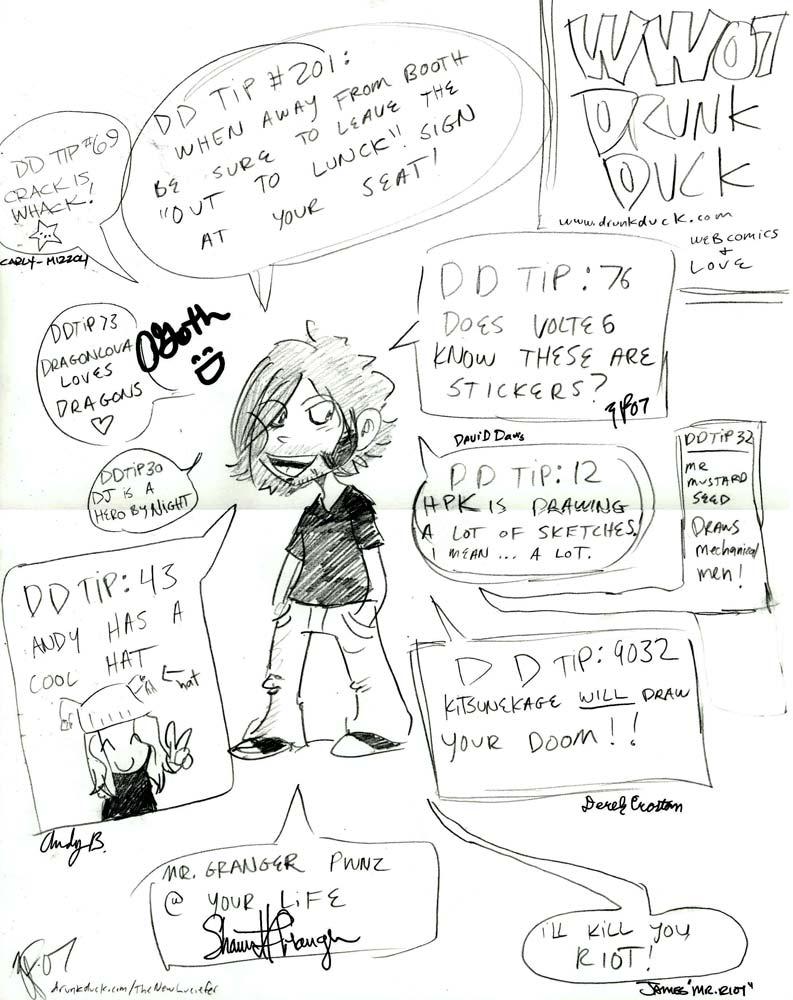 WW07
DRUNK
DUCK
www.drunkduck.com
WEBCOMICS
+
LOVE
DD TIP #201:
WHEN AWAY FROM BOOTH
BE SURE TO LEAVE THE
"OUT TO LUNCK" SIGN
AT YOUR SEAT!
DD TIP #69
CRACK IS
WHACK!
CARLY-MIZZOLY
DD TIP 73
DRAGONLOVA
LOVES
DRAGONS
DD TIP: 76
DOES VOLTE6
KNOW THESE ARE
STICKERS?
DAVID Davis
DD TIP 30
DJ IS A
HERO BY NIGHT
DD TIP: 12
HPK IS DRAWING
A LOT OF SKETCHES.
I MEAN ... A LOT.
DD TIP 32
MR
MUSTARD
SEED
DRAWS
Mechanical
men!
DD TIP: 43
ANDY HAS A
COOL HAT
hat
Andy B.
DD TIP: 9032
KITSUNEKAGE WILL DRAW
YOUR DOOM!!
Derek Croston
MR. GRANGER PWNZ
@ YOUR LIFE
Shawn Granger
I'LL KILL YOU,
RIOT!
JAMES "MR. RIOT"
07
drunkduck.com/TheNewLuciefer